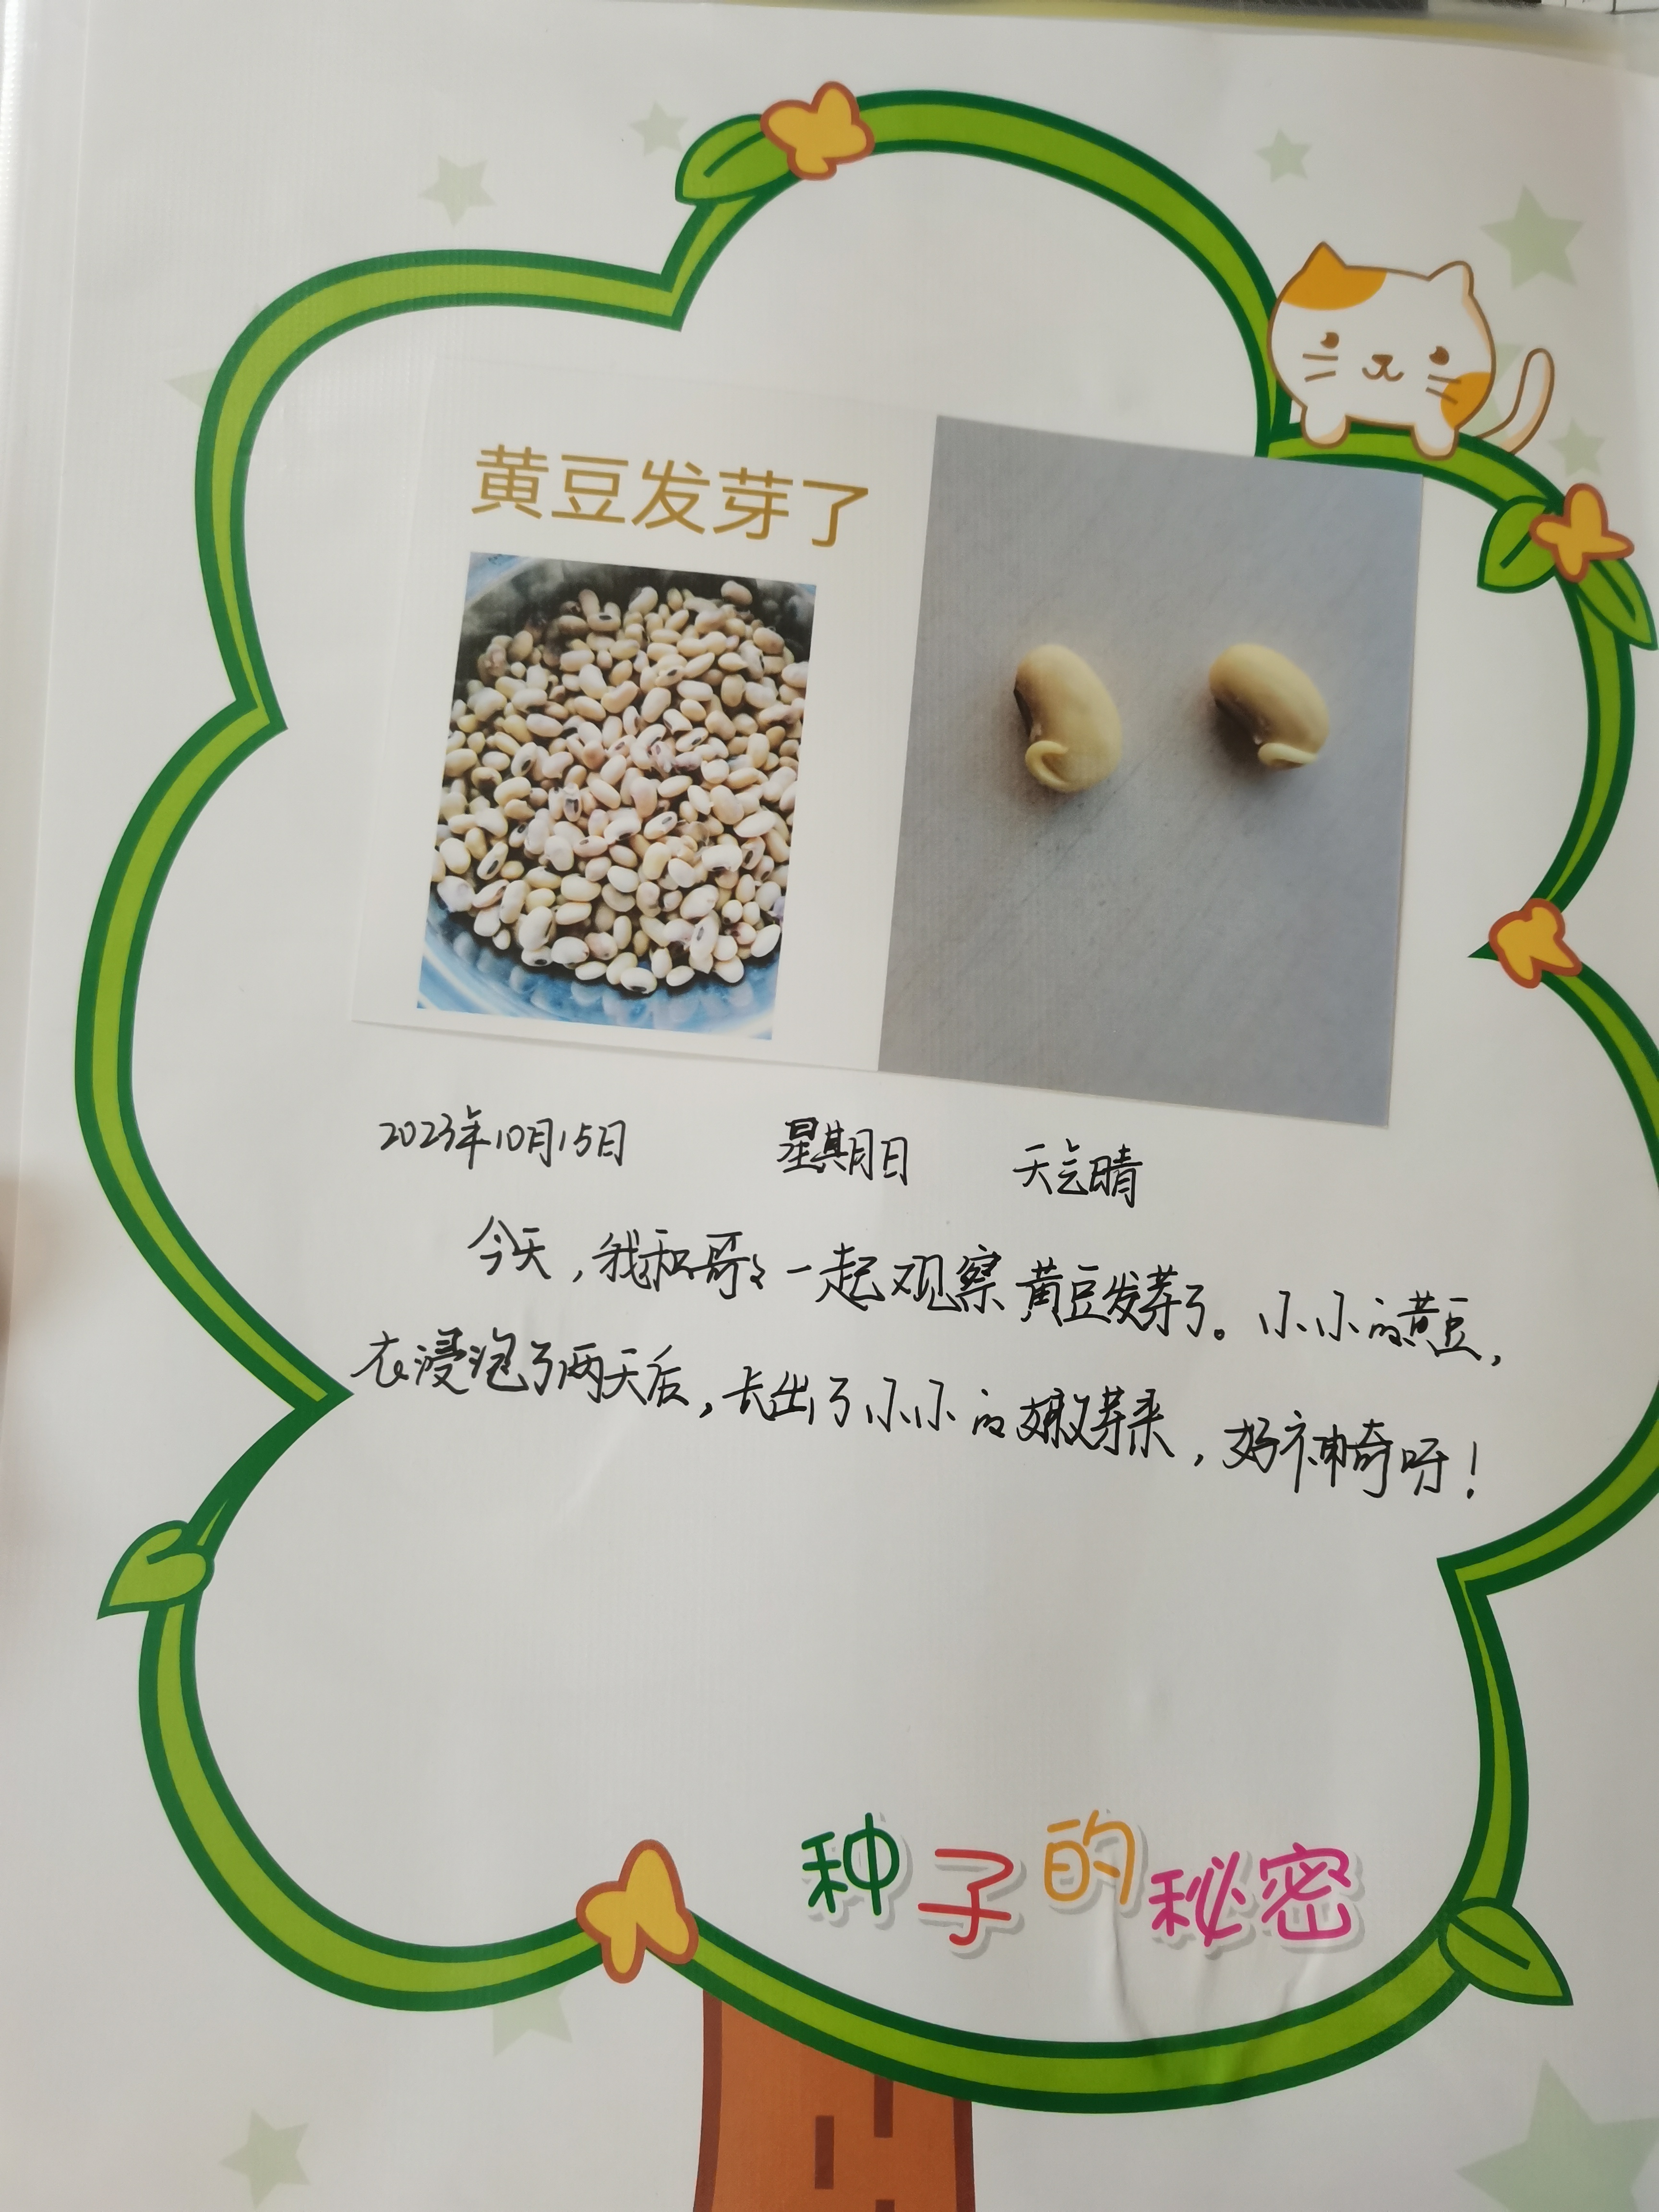 黄豆发芽了
2023年10月15日 星期日 天气晴
今天，我和哥々一起观察黄豆发芽了。小小的黄豆，
衣浸泡了两天后，长出了小小的嫩芽来，好神奇呀！
种子的秘密